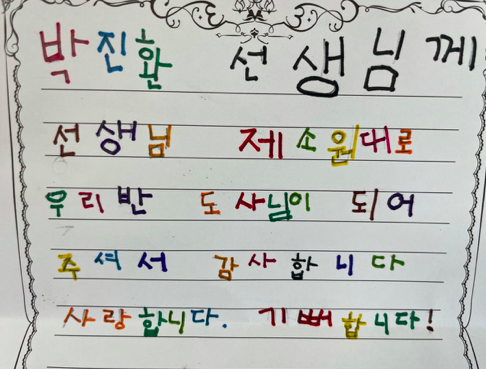 박진환 선생님께
선생님 제 소원대로
우리반 도사님이 되어
주셔서 감사합니다
사랑합니다. 기뻐합니다!